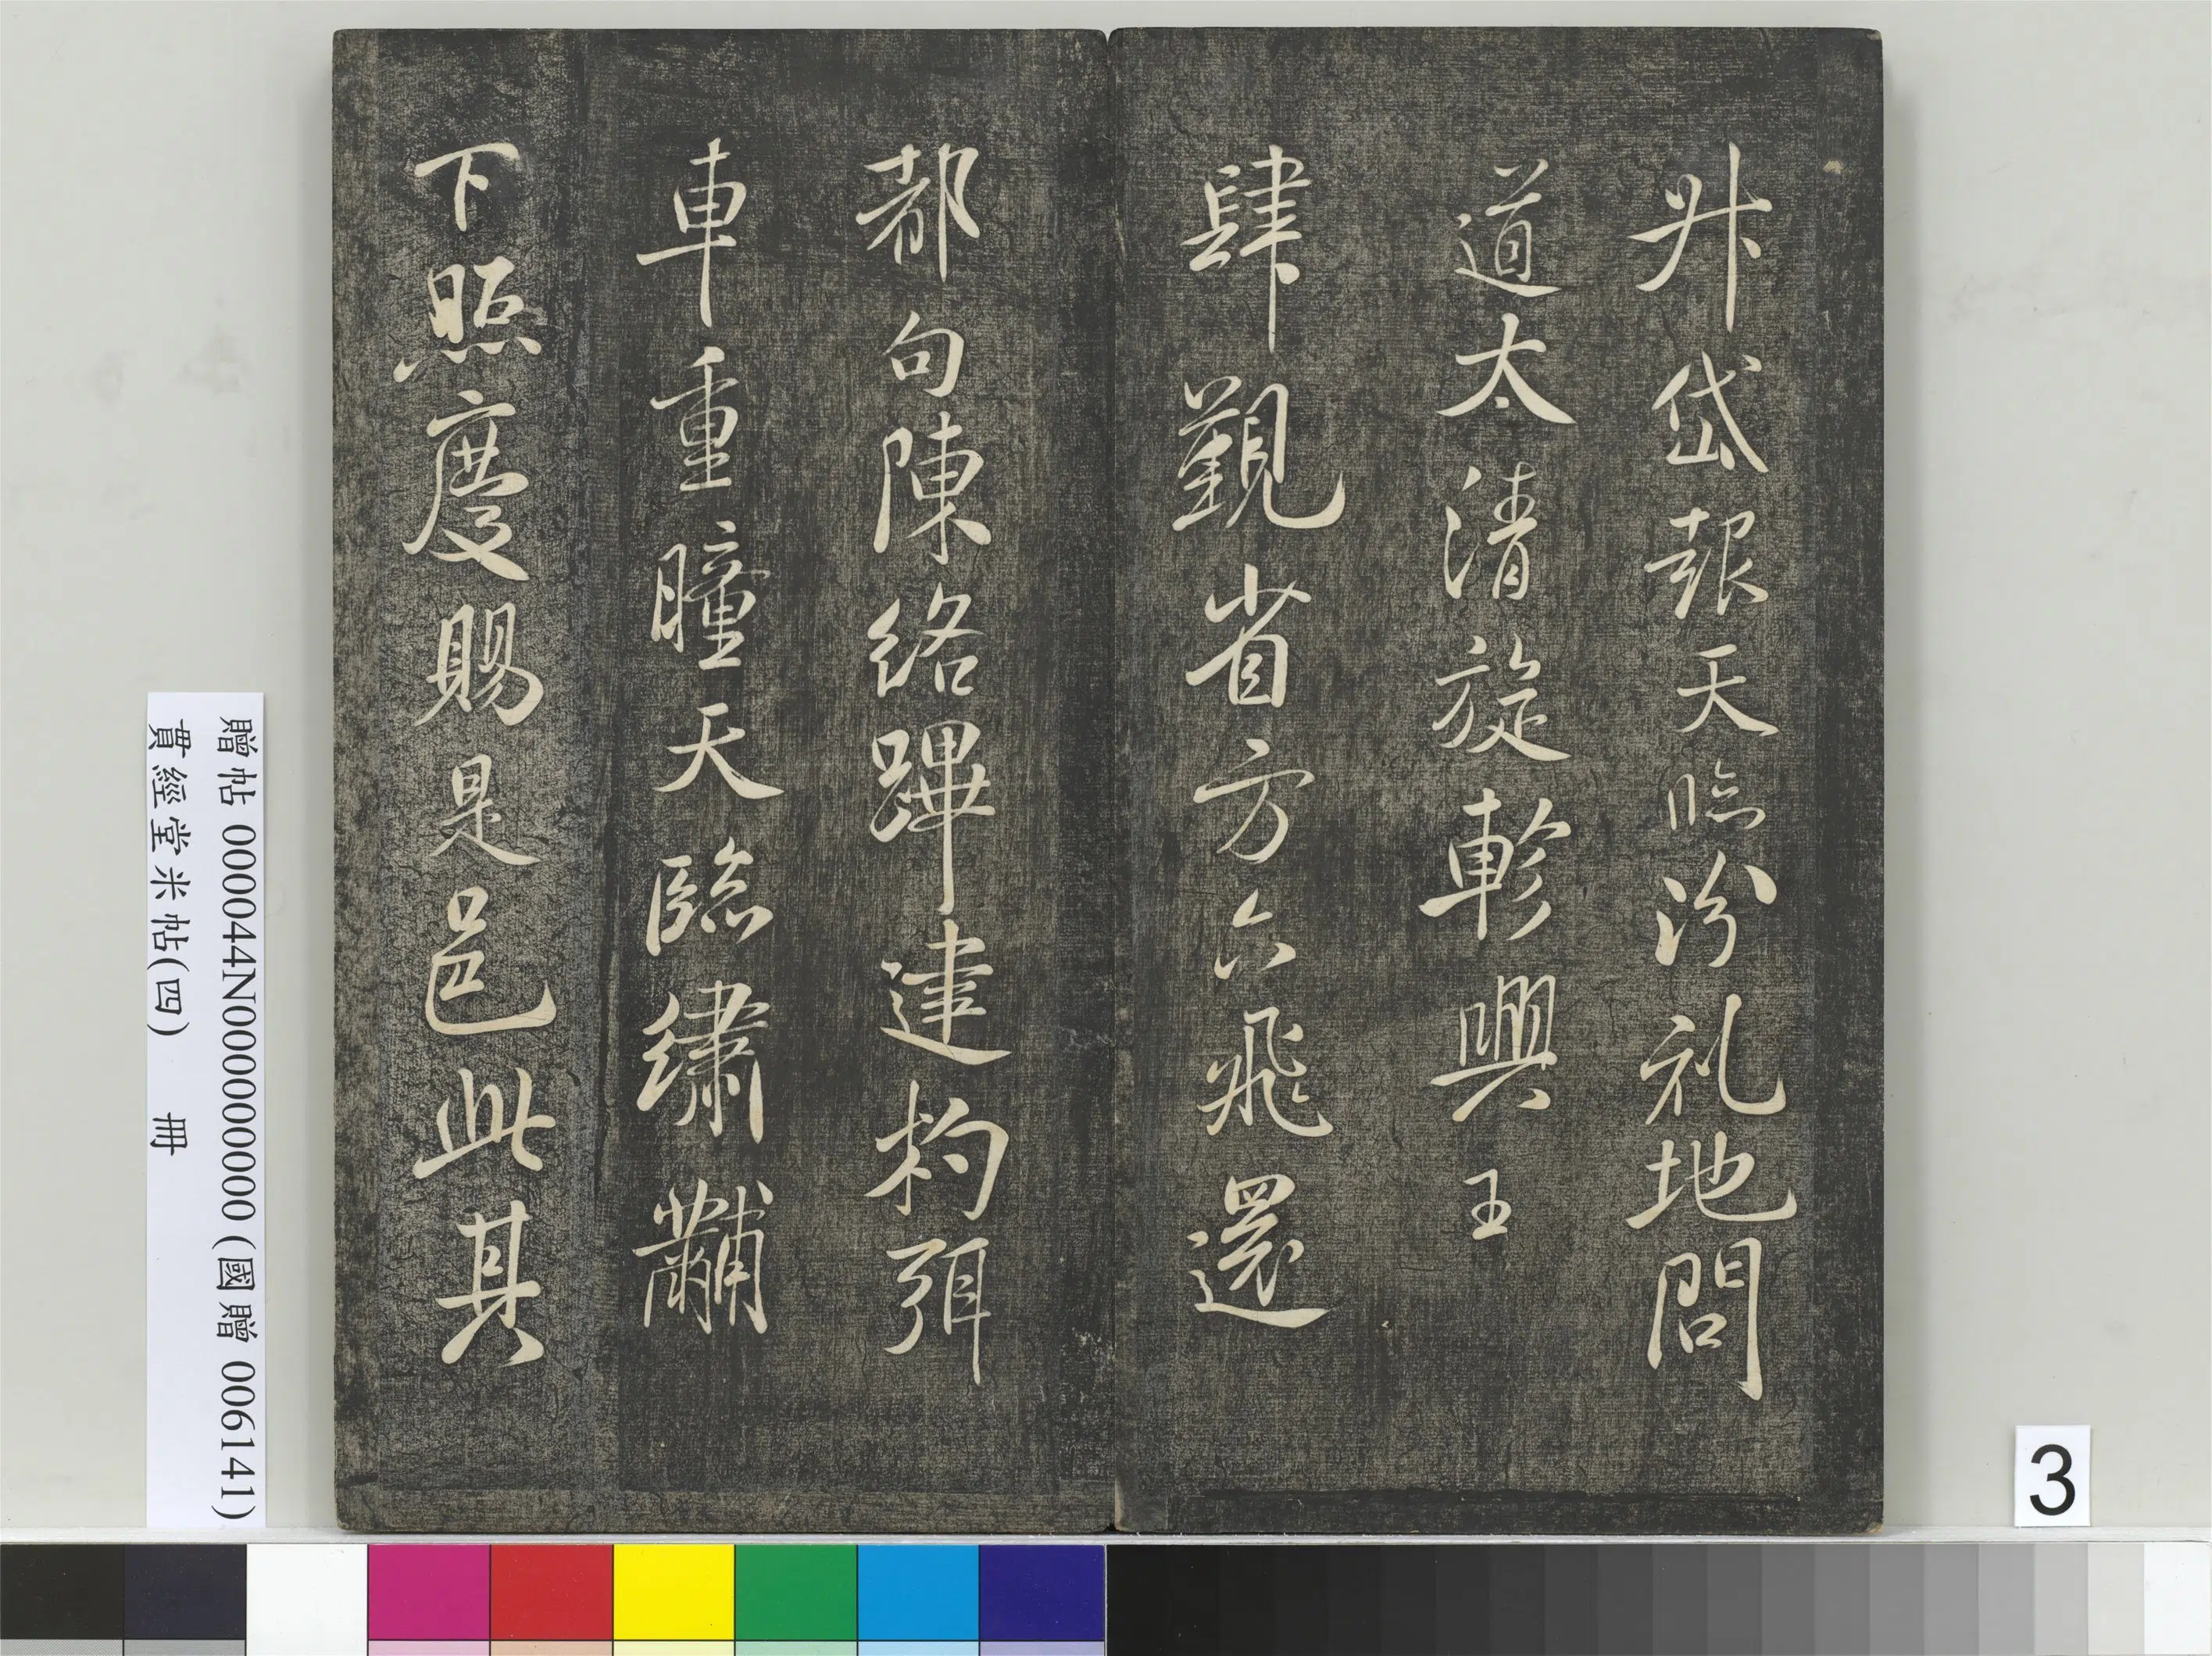 升岱報天臨汾礼地問
道太清旋軫興王
肆覲省方六飛還
都句陳絡蹕建杓弭
車重瞳天臨繡黼
下照慶賜是邑此其
贈帖 000044N000000000 (國贈 006141)
貫經堂米帖(四) 冊
3